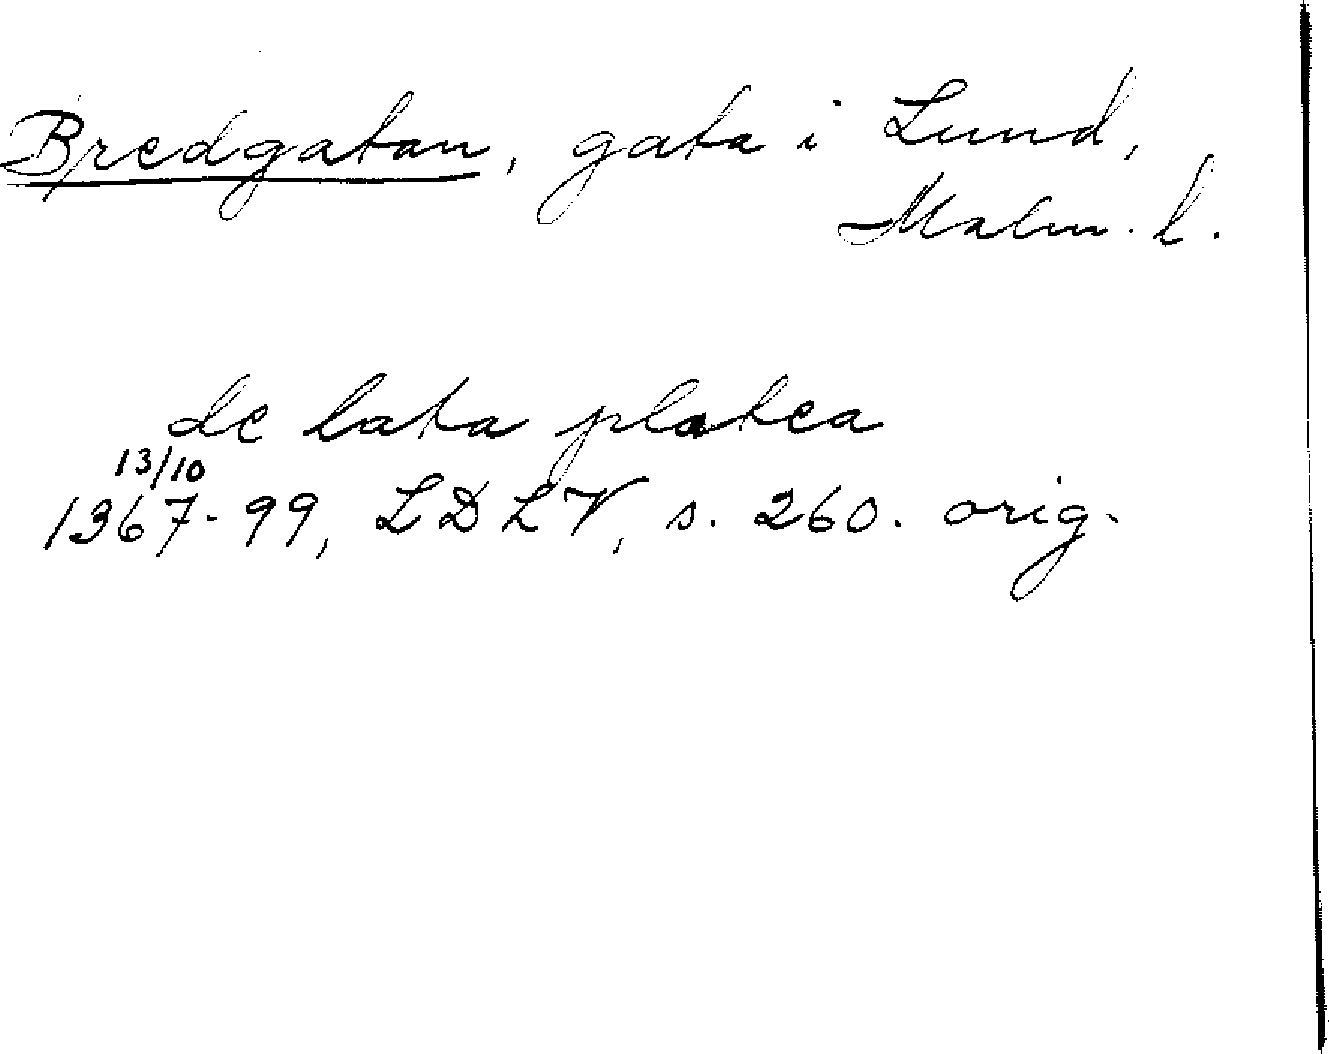 Bredgatan, gata i Lund,
Malm. l.
de lata platea
13/10
1367-99, LDLV, s. 260. orig.